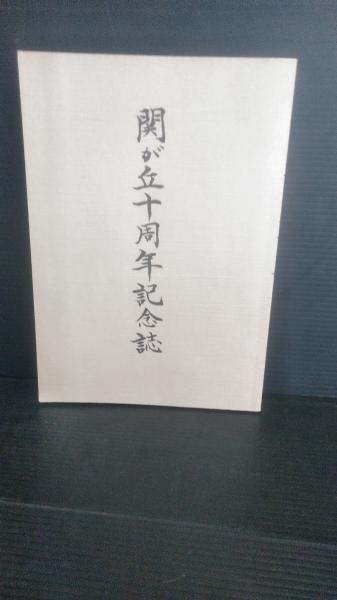 関が丘十周年記念誌